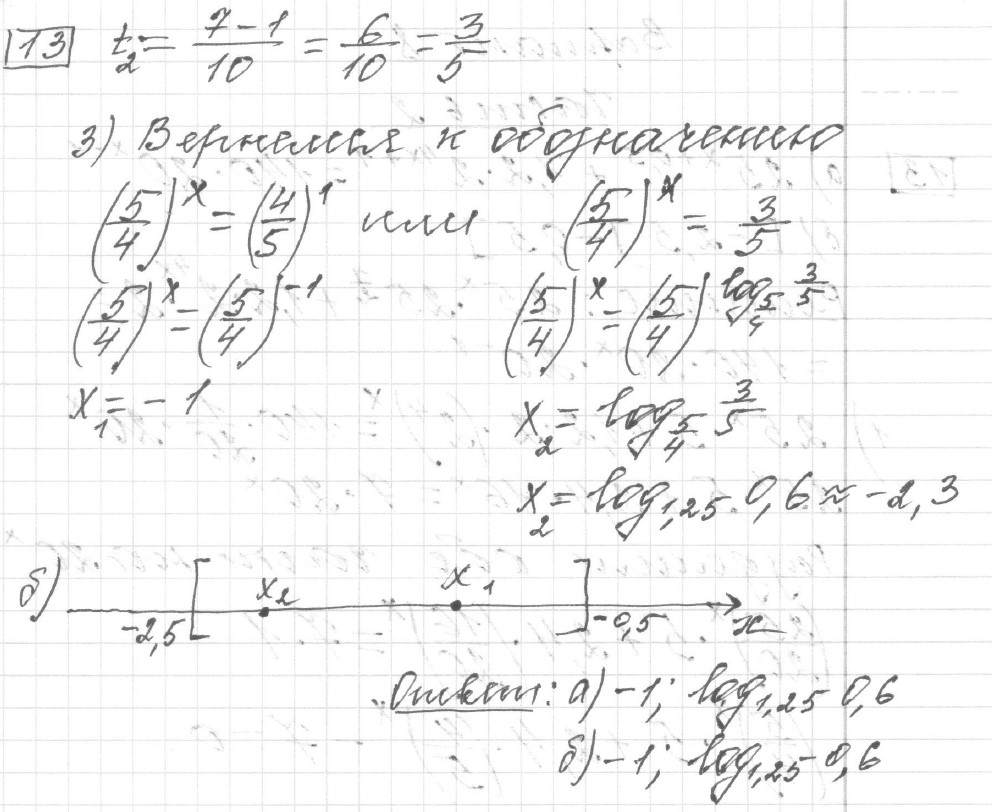 13 t₂ = (7-1)/10 = 6/10 = 3/5
3) Вернемся к обозначению
(5/4)^x = (4/5)^1 или (5/4)^x = 3/5
(5/4)^x = (5/4)^-1 (5/4)^x = (5/4)^(log_(5/4) 3/5)
x₁ = -1 x₂ = log_(5/4) 3/5
x₂ = log_1,25 0,6 ≈ -2,3
б) -2,5 [ x₂ x₁ ] -0,5 x
Ответ: а) -1; log_1,25 0,6
б) -1; log_1,25 0,6